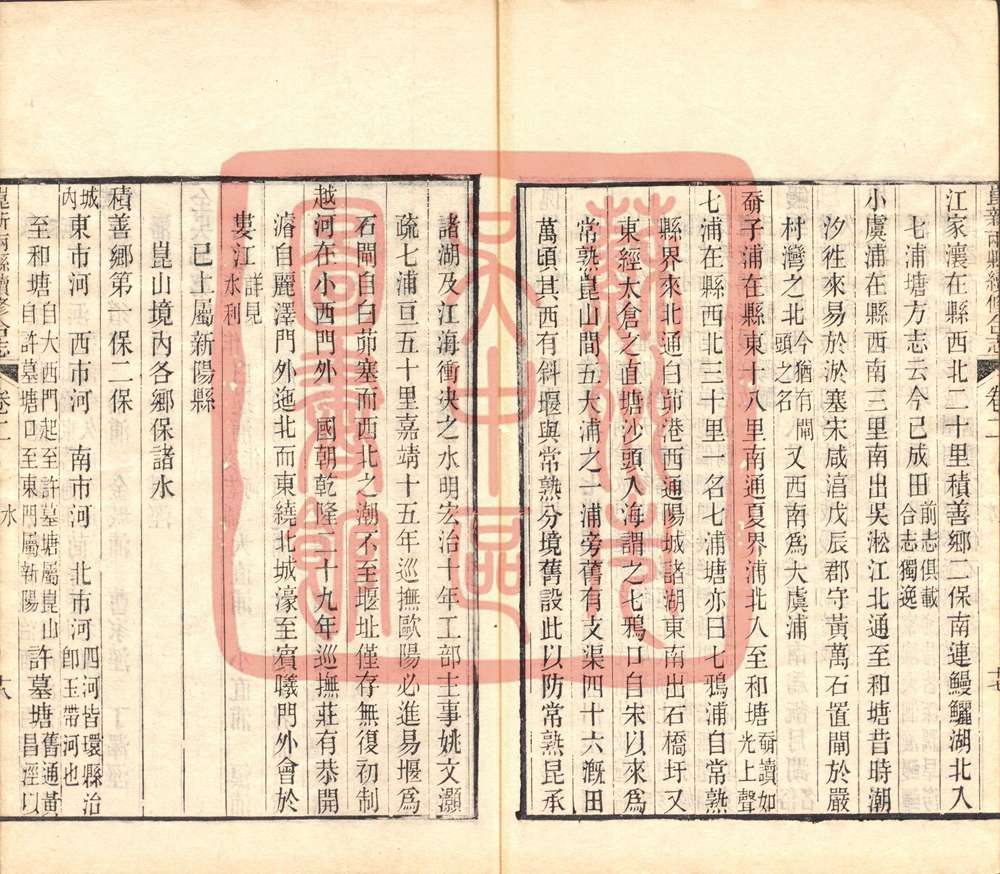 江家瀼在縣西北二十里積善鄉二保南連鰻鱺湖北入
七浦塘方志云今已成田前志俱載合志獨逸
小虞浦在縣西南三里南出吳淞江北通至和塘昔時潮
汐徃來易於淤塞宋咸淳戊辰郡守黃萬石置閘於嚴
村灣之北今猶有閘頭之名又西南爲大虞浦
奣子浦在縣東十八里南通夏界浦北入至和塘奣讀如光上聲
七浦在縣西北三十里一名七浦塘亦曰七鴉浦自常熟
縣界來北通白茆港西通陽城諸湖東南出石橋圩又
東經太倉之直塘沙頭入海謂之七鴉口自宋以來爲
常熟崑山間五大浦之一浦旁舊有支渠四十六溉田
萬頃其西有斜堰與常熟分境舊設此以防常熟昆承
諸湖及江海衝决之水明宏治十年工部主事姚文灝
疏七浦亘五十里嘉靖十五年巡撫歐陽必進易堰爲
石閘自白茆塞而西北之潮不至堰址僅存無復初制
越河在小西門外 國朝乾隆二十九年巡撫莊有恭開
濬自麗澤門外迤北而東繞北城濠至賓曦門外會於
婁江詳見水利
已上屬新陽縣
崑山境內各鄉保諸水
積善鄉第一保二保
城內東市河 西市河 南市河 北市河四河皆環縣治即玉帶河也
至和塘自大西門起至許墓塘屬崑山自許墓塘口至東門屬新陽 許墓塘舊通黃昌涇以
崑新兩縣續修合志 卷二 水